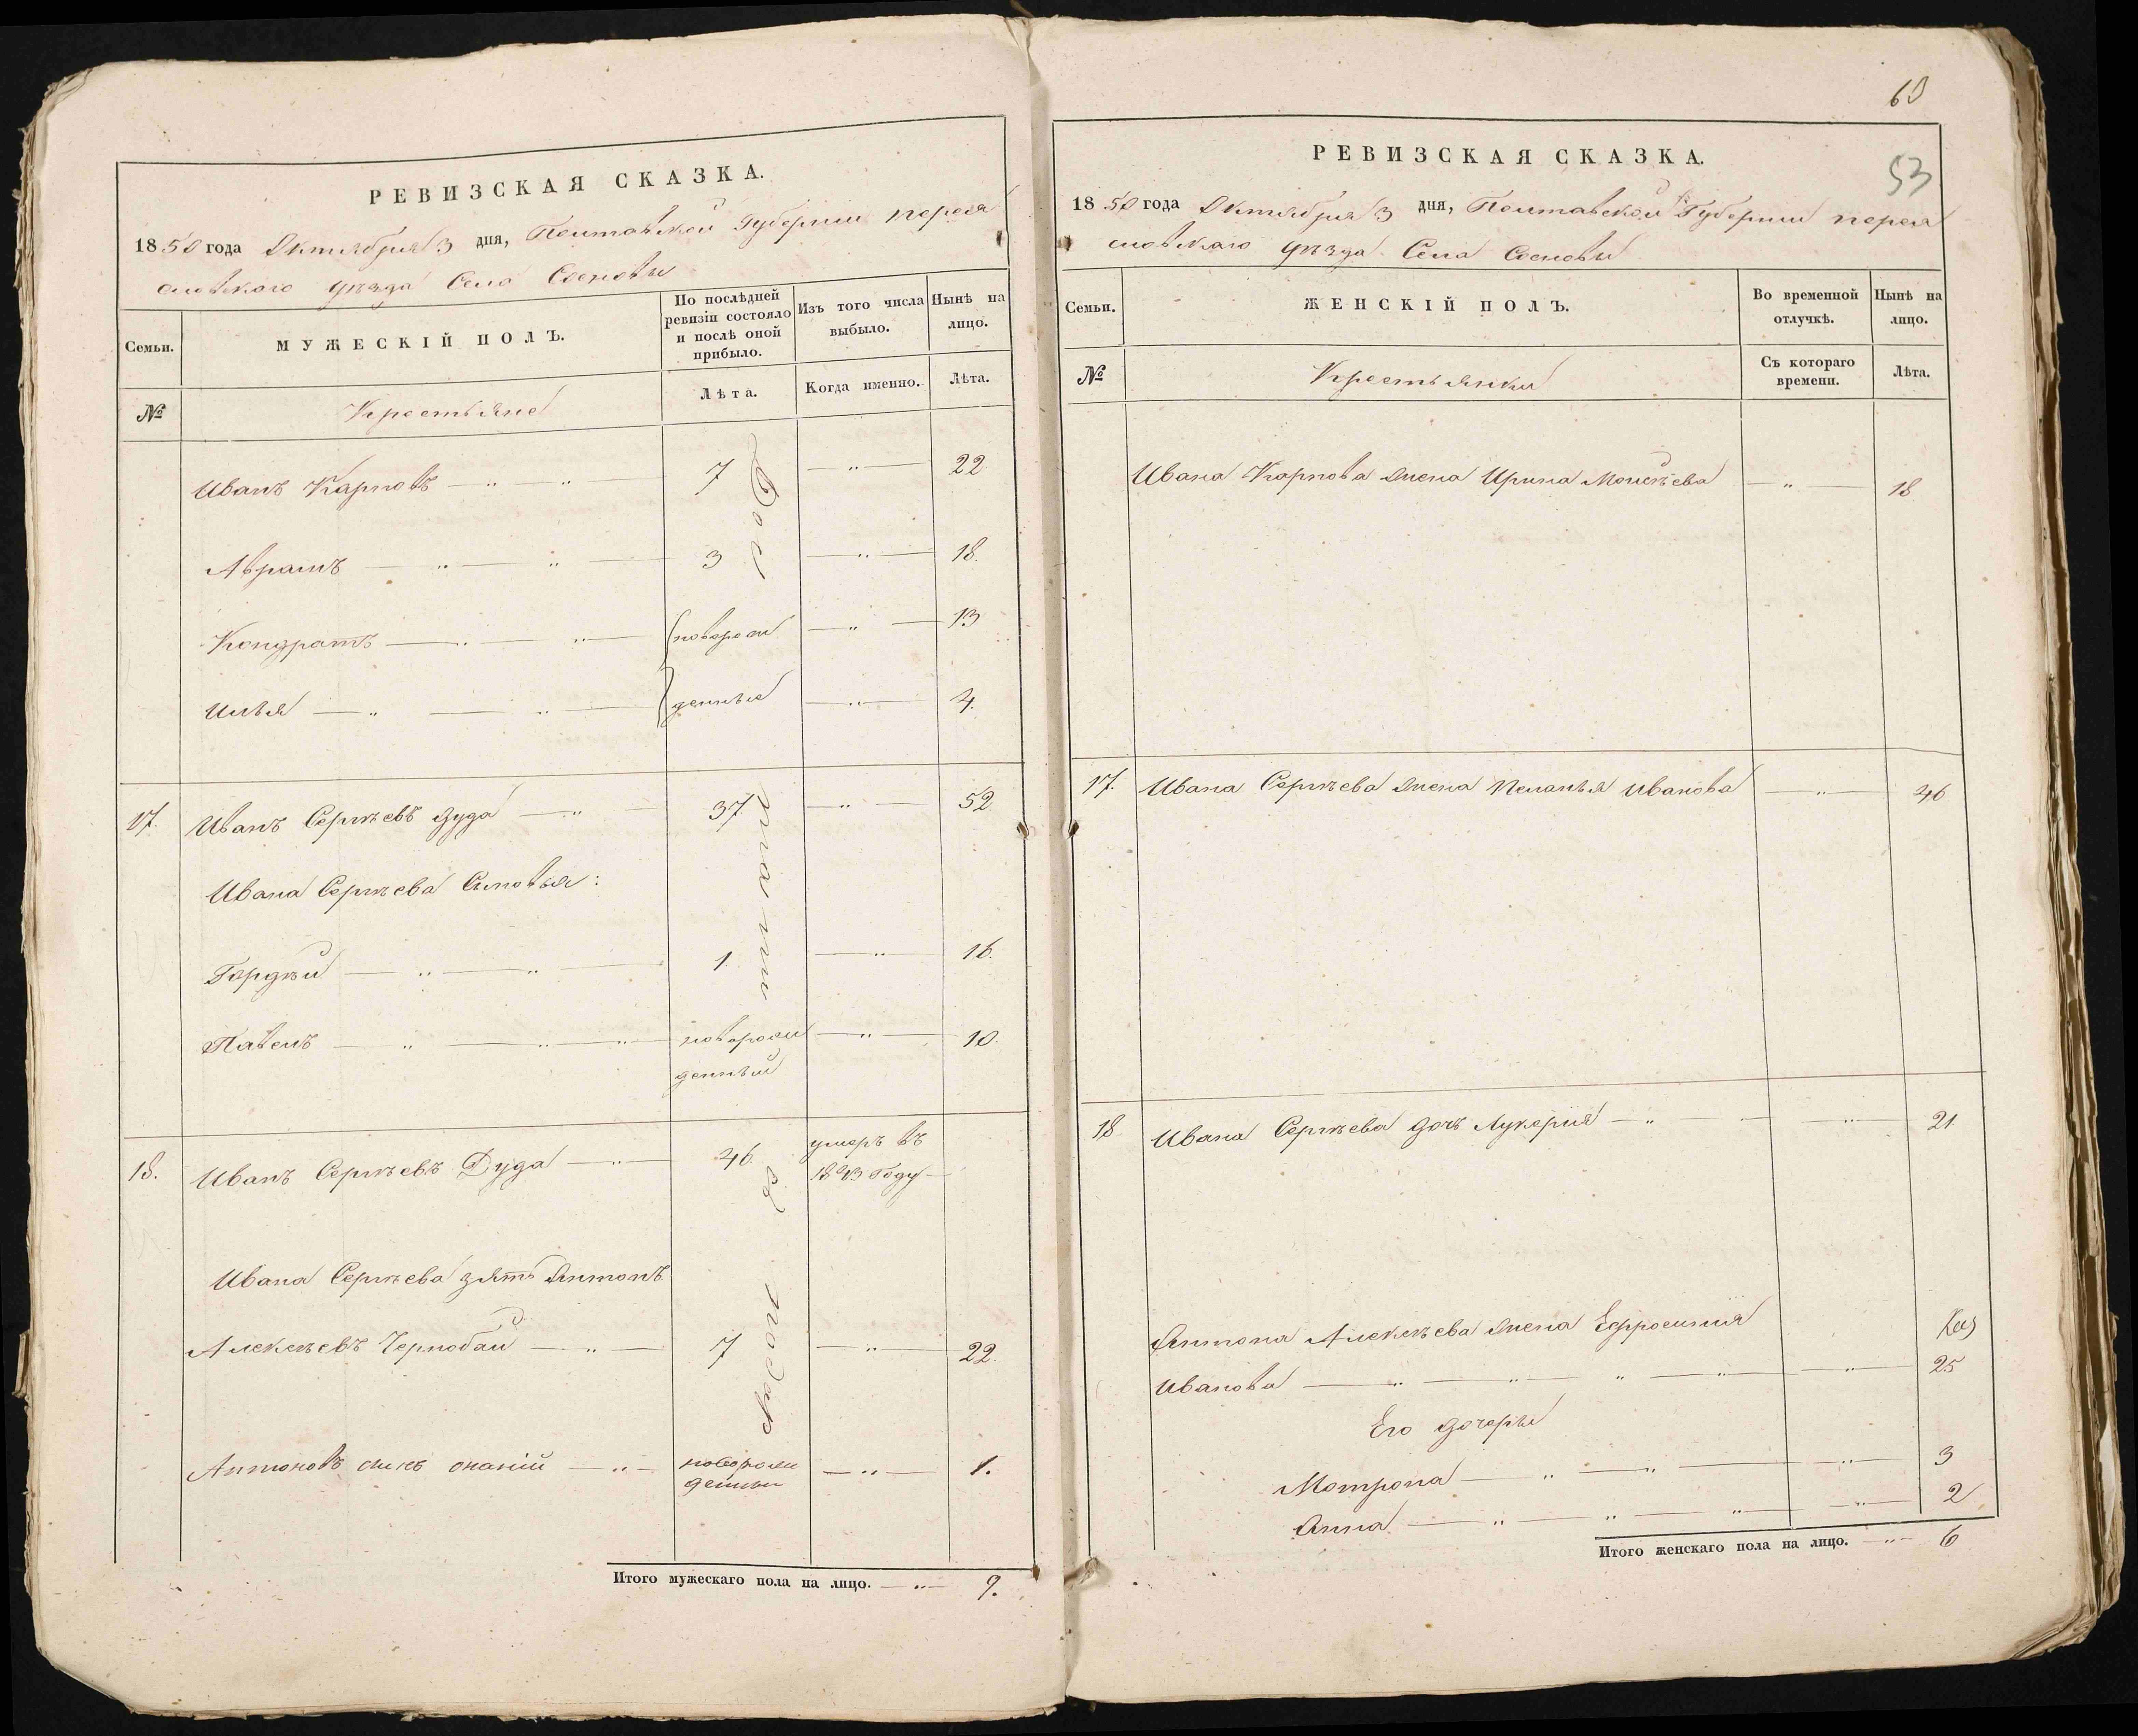 РЕВИЗСКАЯ СКАЗКА.
1850 года Октября 3 дня, Полтавской Губернии Перея
словскаго уѣзда Села Сосновы
Семьи.
МУЖЕСКІЙ ПОЛЪ.
По послѣдней ревизіи состояло и послѣ оной прибыло.
Изъ того числа выбыло.
Нынѣ на лицо.
№
Крестьяне
Лѣта.
Когда именно.
Лѣта.
Иванъ Карповъ — „ „ 7 — „ — 22
Аврамъ — „ — „ — 3 — „ — 18.
Кондратъ — „ — „ — новорож — „ — 13
Илья — „ — „ — денные — „ — 4.
17. Иванъ Сергѣевъ Дуда — „ — 37 — „ — 52.
Ивана Сергѣева Сыновья:
Гордѣй — „ — „ — 1. — „ — 16.
Павелъ — „ — „ — „ — новорож — „ — 10.
денный
18. Иванъ Сергѣевъ Дуда — „ — 46. умеръ въ
1843 Году —
Ивана Сергѣева зять Антонъ
Алексѣевъ Чернобай — „ — 7 — „ — 22.
Антоновъ сынъ онаній — „ — новорож — „ — 1.
денны
Итого мужескаго пола на лицо. — „ — 9.
60
53
РЕВИЗСКАЯ СКАЗКА.
1850 года Октября 3 дня, Полтавской Губерніи Перея
словскаго уѣзда Села Сосновы
Семьи.
ЖЕНСКІЙ ПОЛЪ.
Во временной отлучкѣ.
Нынѣ на лицо.
№
Крестьянки
Съ котораго времени.
Лѣта.
Ивана Карпова жена Ирина Моисѣева — „ — 18
17. Ивана Сергѣева жена Пелагѣя Иванова — „ — 46
18 Ивана Сергѣева дочь Лукерия — „ — „ — 21
Антона Алексѣева жена Ефросинія
Иванова — „ — „ — „ — „ — „ — 25
Его дочери
Мотрона — „ — „ — „ — 3
Анна — „ — „ — „ — „ — 2
Итого женскаго пола на лицо. — „ — 6